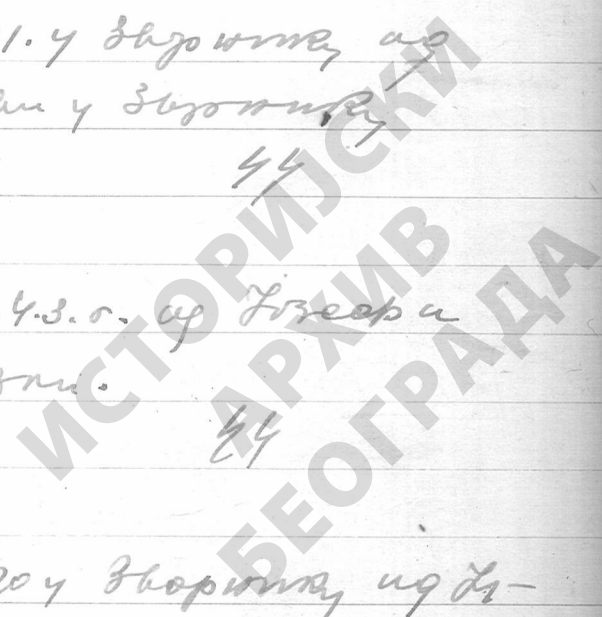 1. у Зворнику од
у Зворнику
44
4.3.о. од Јозефа и
44
у Зворнику од Із-
ИСТОРИЈСКИ
АРХИВ
БЕОГРАДА